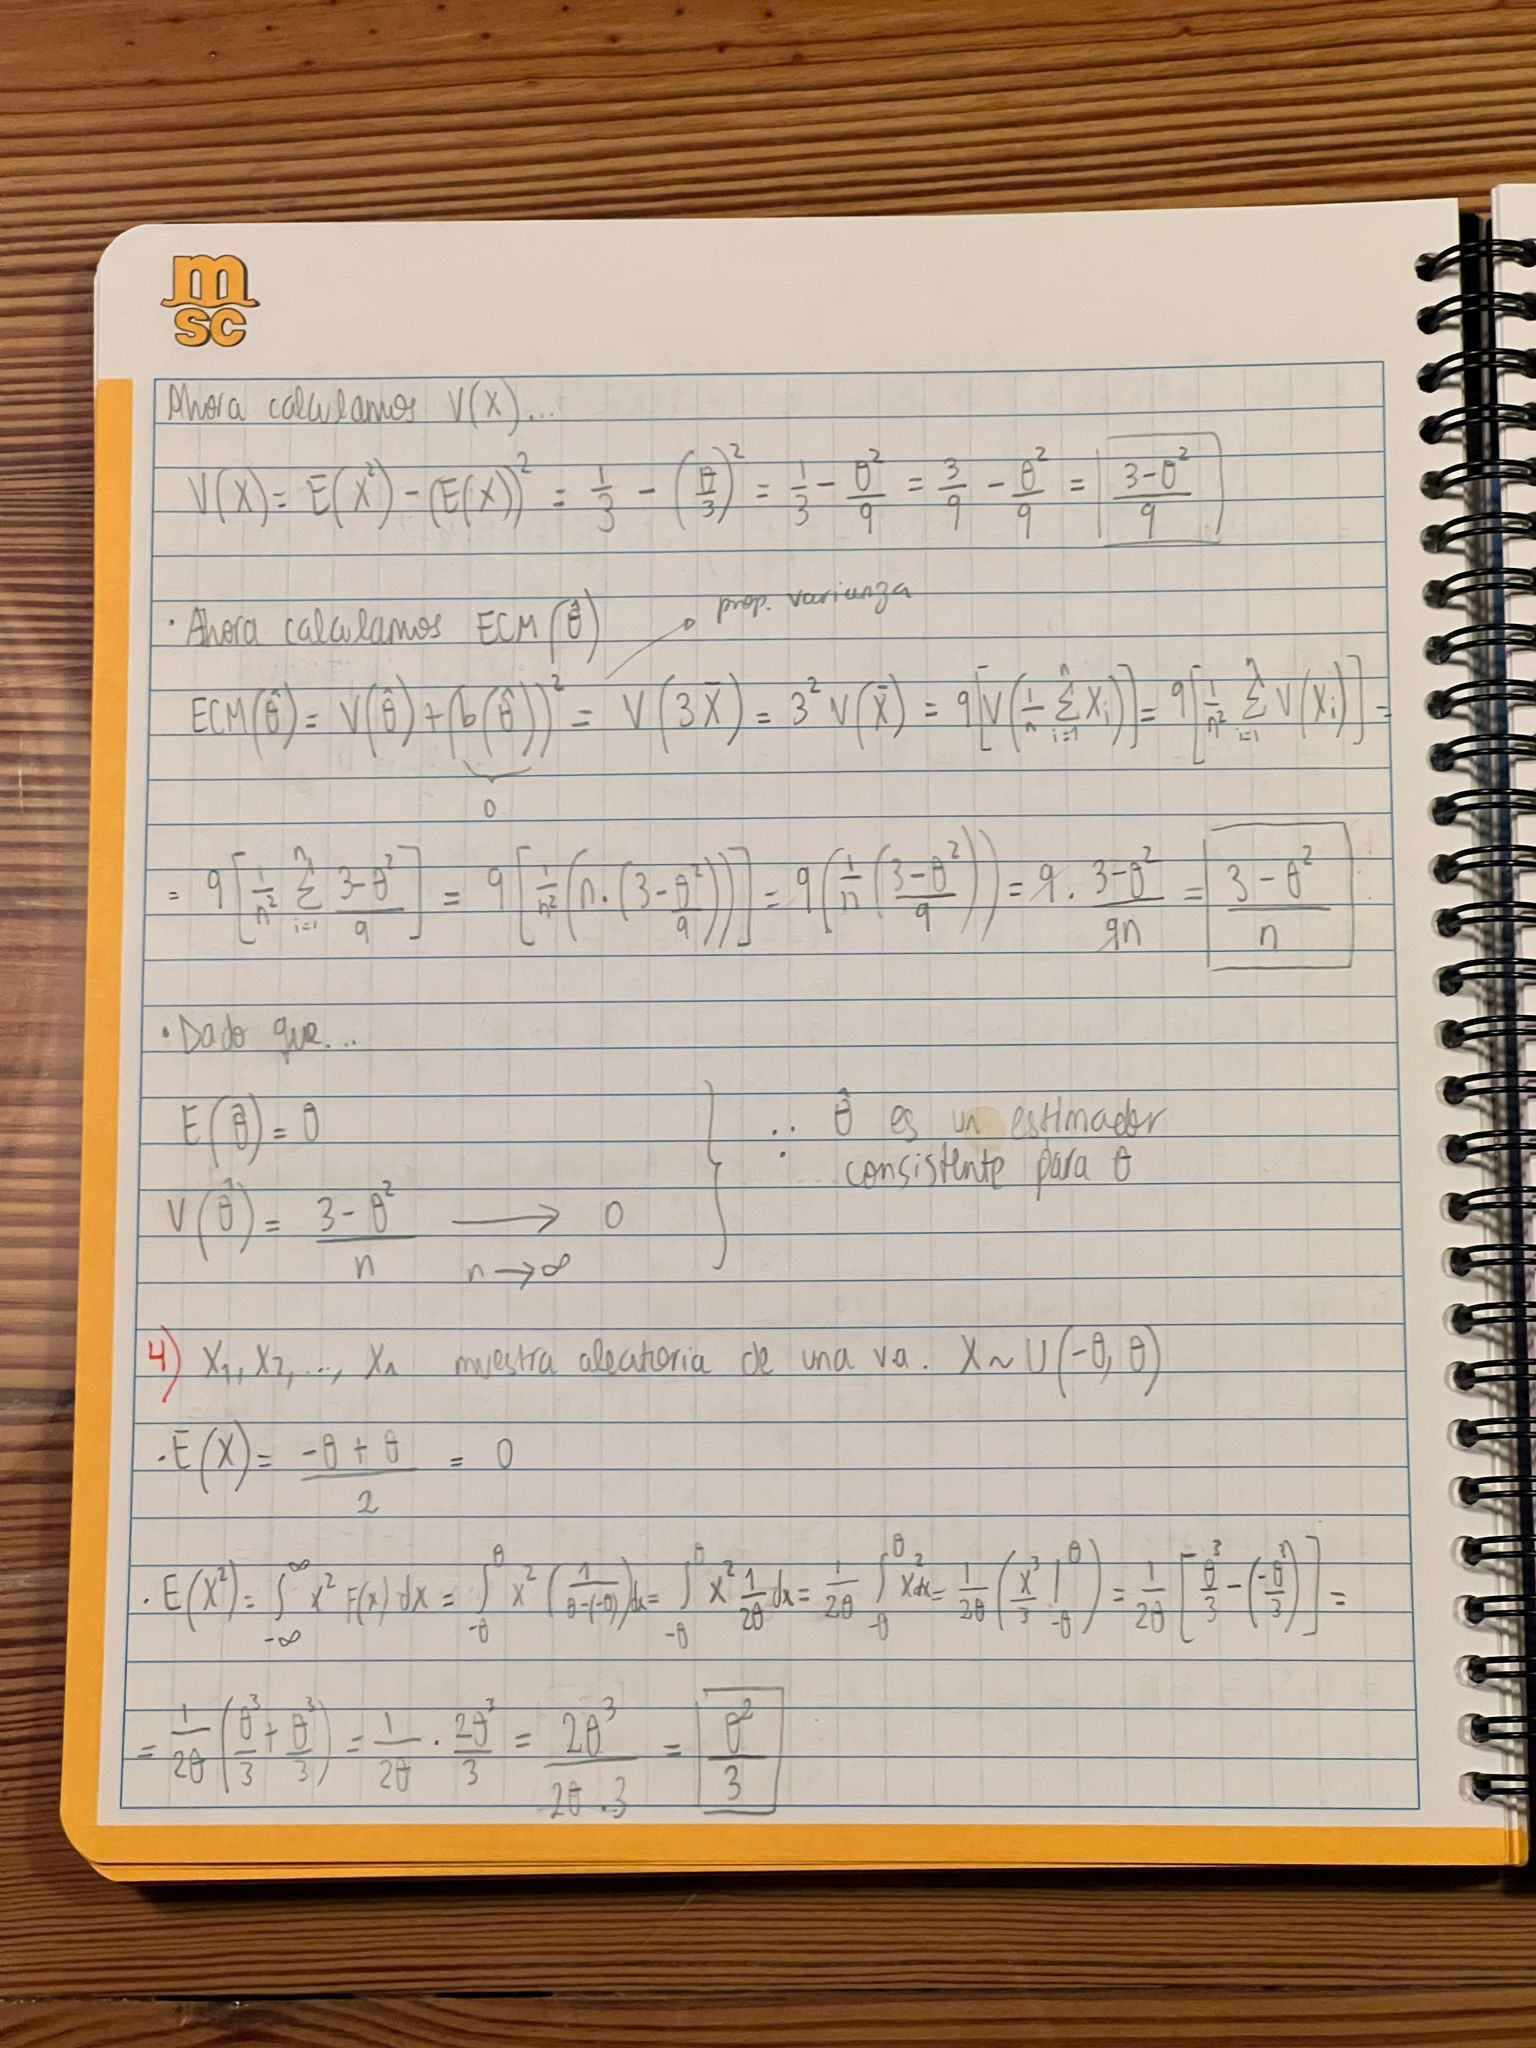 m
sc
Ahora calculamos V(X)...
V(X) = E(X²) - (E(X))² = 1/3 - (θ/3)² = 1/3 - θ²/9 = 3/9 - θ²/9 = (3-θ²)/9
prop. varianza
· Ahora calculamos ECM(θ̂)
ECM(θ̂) = V(θ̂) + (b(θ̂))² = V(3X̄) = 3² V(X̄) = 9[V(1/n Σ_{i=1}^{n} X_i)] = 9[1/n² Σ_{i=1}^{n} V(X_i)] =
0
= 9[1/n² Σ_{i=1}^{n} (3-θ²)/9] = 9[1/n² (n·((3-θ²)/9))] = 9(1/n ((3-θ²)/9)) = 9 · (3-θ²)/(9n) = (3-θ²)/n
· Dado que...
E(θ̂) = θ
∴ θ̂ es un estimador
consistente para θ
V(θ̂) = (3-θ²)/n → 0
n→∞
4) X₁, X₂, ..., Xₙ muestra aleatoria de una va. X ~ U(-θ, θ)
· E(X) = (-θ+θ)/2 = 0
· E(X²) = ∫_{-∞}^{∞} x² F(x) dx = ∫_{-θ}^{θ} x² (1/(θ-(-θ))) dx = ∫_{-θ}^{θ} x² 1/2θ dx = 1/2θ ∫_{-θ}^{θ} x² dx = 1/2θ (x³/3 |_{-θ}^{θ}) = 1/2θ [θ³/3 - (-θ³/3)] =
= 1/2θ (θ³/3 + θ³/3) = 1/2θ · 2θ³/3 = 2θ³/(2θ·3) = θ²/3